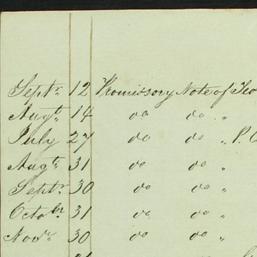 Septr. 12 Promissory Note of
Augt. 14 do do "
July 27 do do " P.
Augt. 31 do do "
Septr. 30 do do "
Octobr. 31 do do "
Novr. 30 do do "